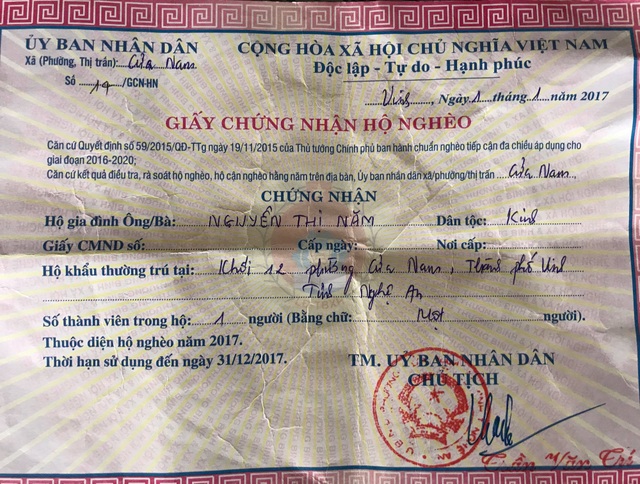 ỦY BAN NHÂN DÂN
Xã (Phường, Thị trấn): Cửa Nam
Số 19 /GCN-HN
CỘNG HÒA XÃ HỘI CHỦ NGHĨA VIỆT NAM
Độc lập - Tự do - Hạnh phúc
Vinh, Ngày 1 tháng 1 năm 2017
GIẤY CHỨNG NHẬN HỘ NGHÈO
Căn cứ Quyết định số 59/2015/QĐ-TTg ngày 19/11/2015 của Thủ tướng Chính phủ ban hành chuẩn nghèo tiếp cận đa chiều áp dụng cho
giai đoạn 2016-2020;
Căn cứ kết quả điều tra, rà soát hộ nghèo, hộ cận nghèo hằng năm trên địa bàn, Ủy ban nhân dân xã/phường/thị trấn Cửa Nam,
CHỨNG NHẬN
Hộ gia đình Ông/Bà: NGUYỄN THỊ NĂM Dân tộc: Kinh
Giấy CMND số: Cấp ngày: Nơi cấp:
Hộ khẩu thường trú tại: Khối 12 phường Cửa Nam, Thành phố Vinh
Tỉnh Nghệ An
Số thành viên trong hộ: 1 người (Bằng chữ: Một người).
Thuộc diện hộ nghèo năm 2017.
Thời hạn sử dụng đến ngày 31/12/2017.
TM. UỶ BAN NHÂN DÂN
CHỦ TỊCH
Trần Văn